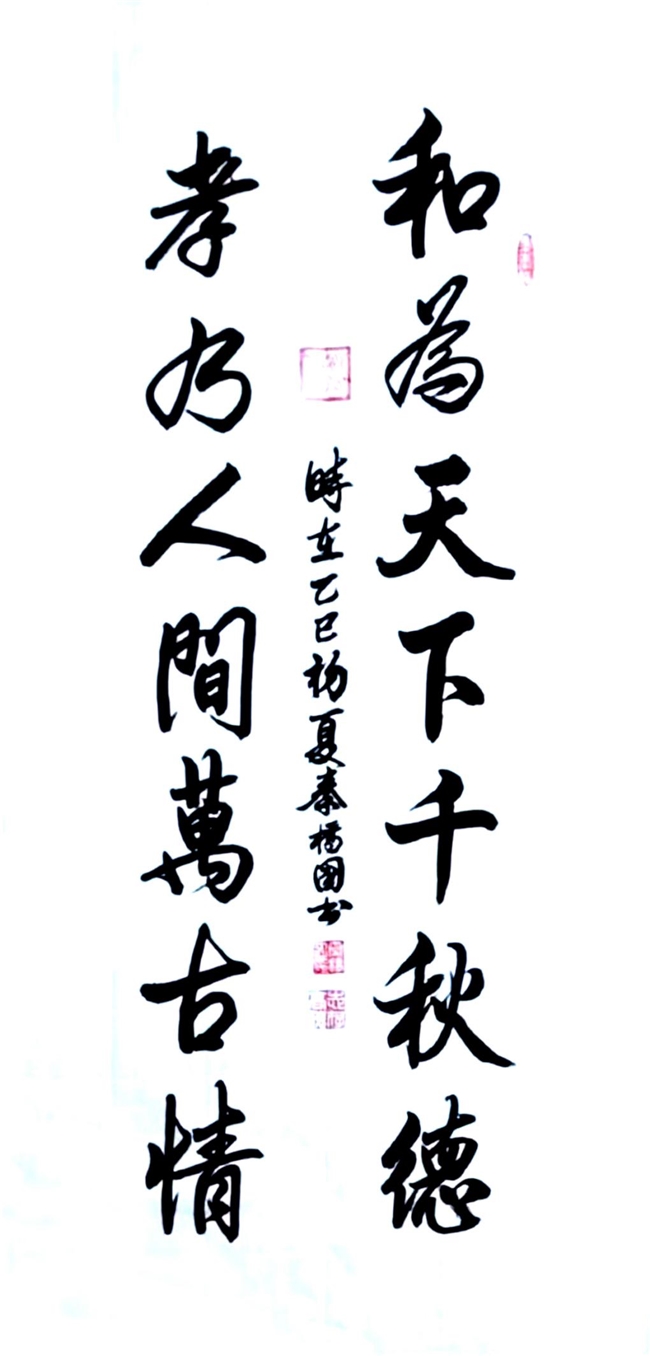 和為天下千秋德
時在乙巳初夏秦橋國书
孝乃人間萬古情